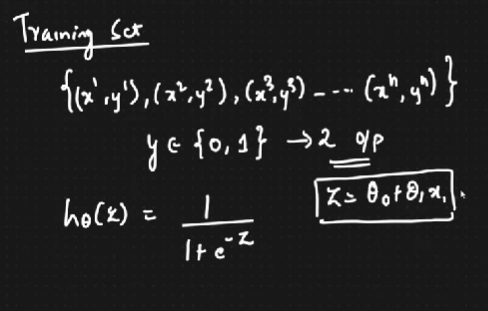 Training Set
{(x¹, y¹), (x², y²), (x³, y³) ---- (xⁿ, yⁿ)}
y ∈ {0, 1} → 2 o/p
hθ(x) = 1 / (1 + e^-z)
z = θ₀ + θ₁ x₁